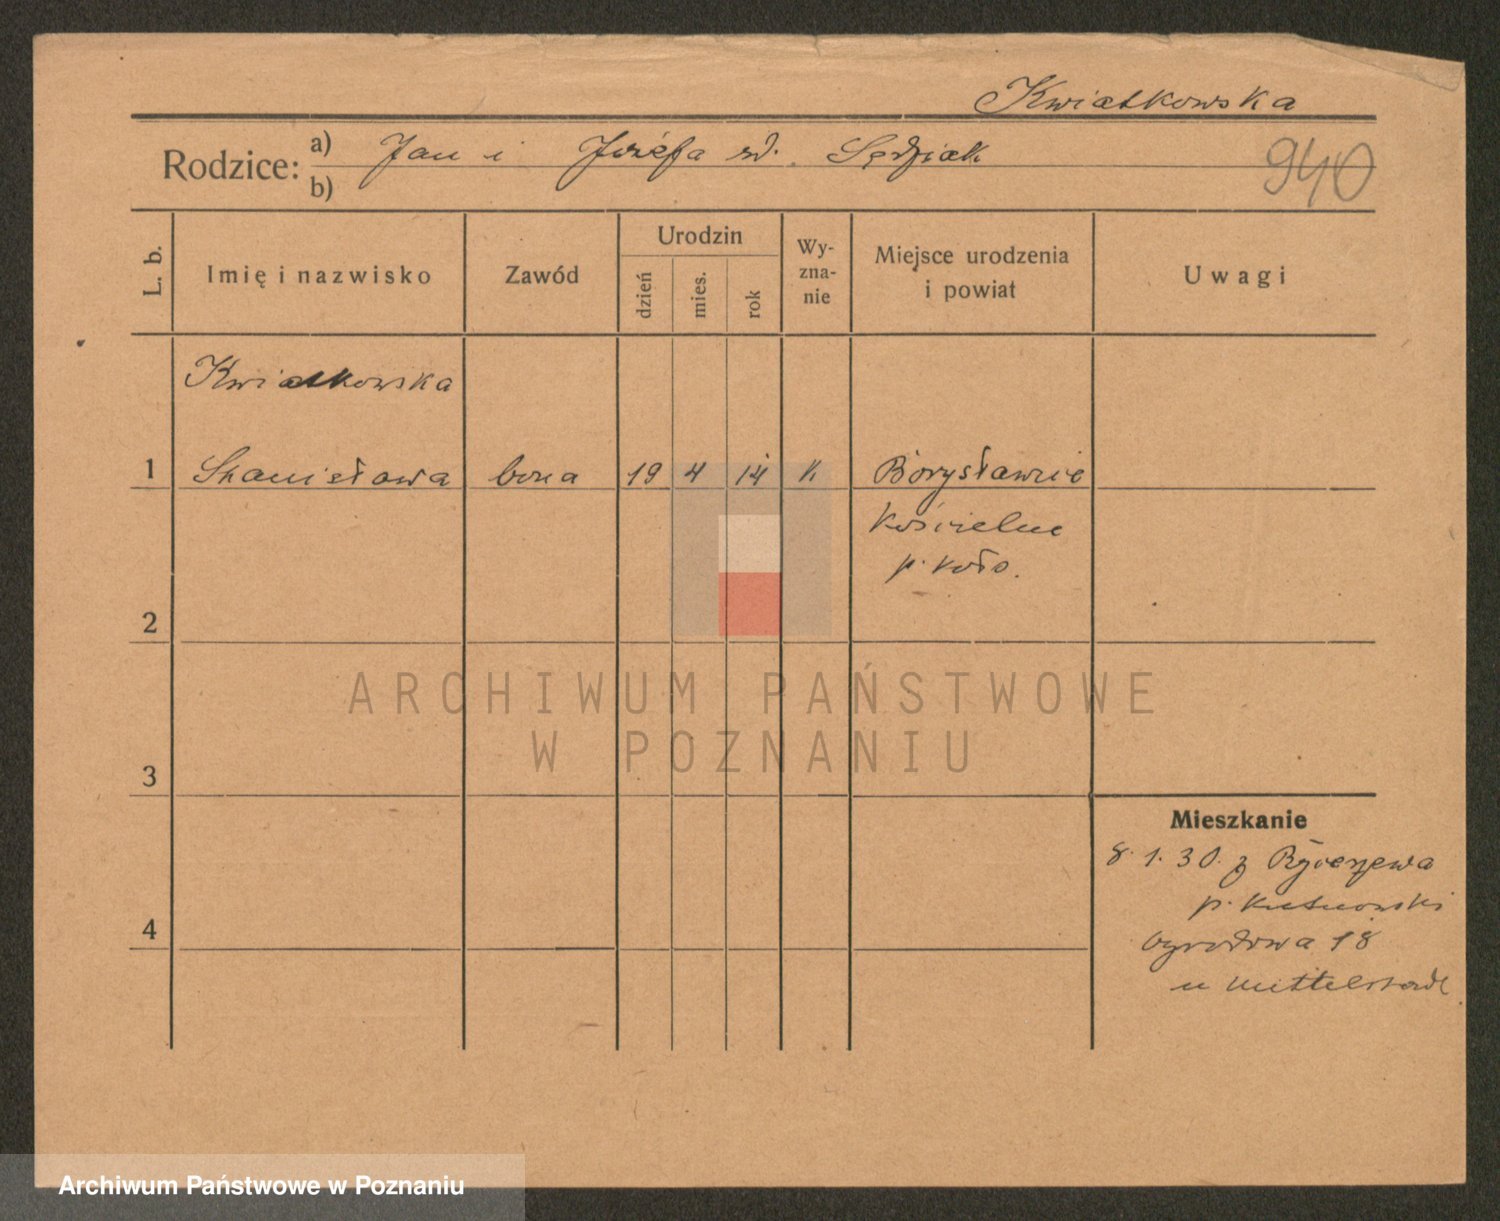 Kwiatkowska
Rodzice: a) Jan i Józefa zd. Sędziak
b)
940
L. b.
Imię i nazwisko
Zawód
Urodzin
dzień
mies.
rok
Wy-
zna-
nie
Miejsce urodzenia
i powiat
Uwagi
Kwiatkowska
1 Stanisława bona 19 4 14 k Borysławice
Kościelne
p. Koło.
2
ARCHIWUM PAŃSTWOWE
W POZNANIU
3
Mieszkanie
8. 1. 30. z
p. Kutnowski
4
Ogrodowa 18
u Mittelstadt
Archiwum Państwowe w Poznaniu